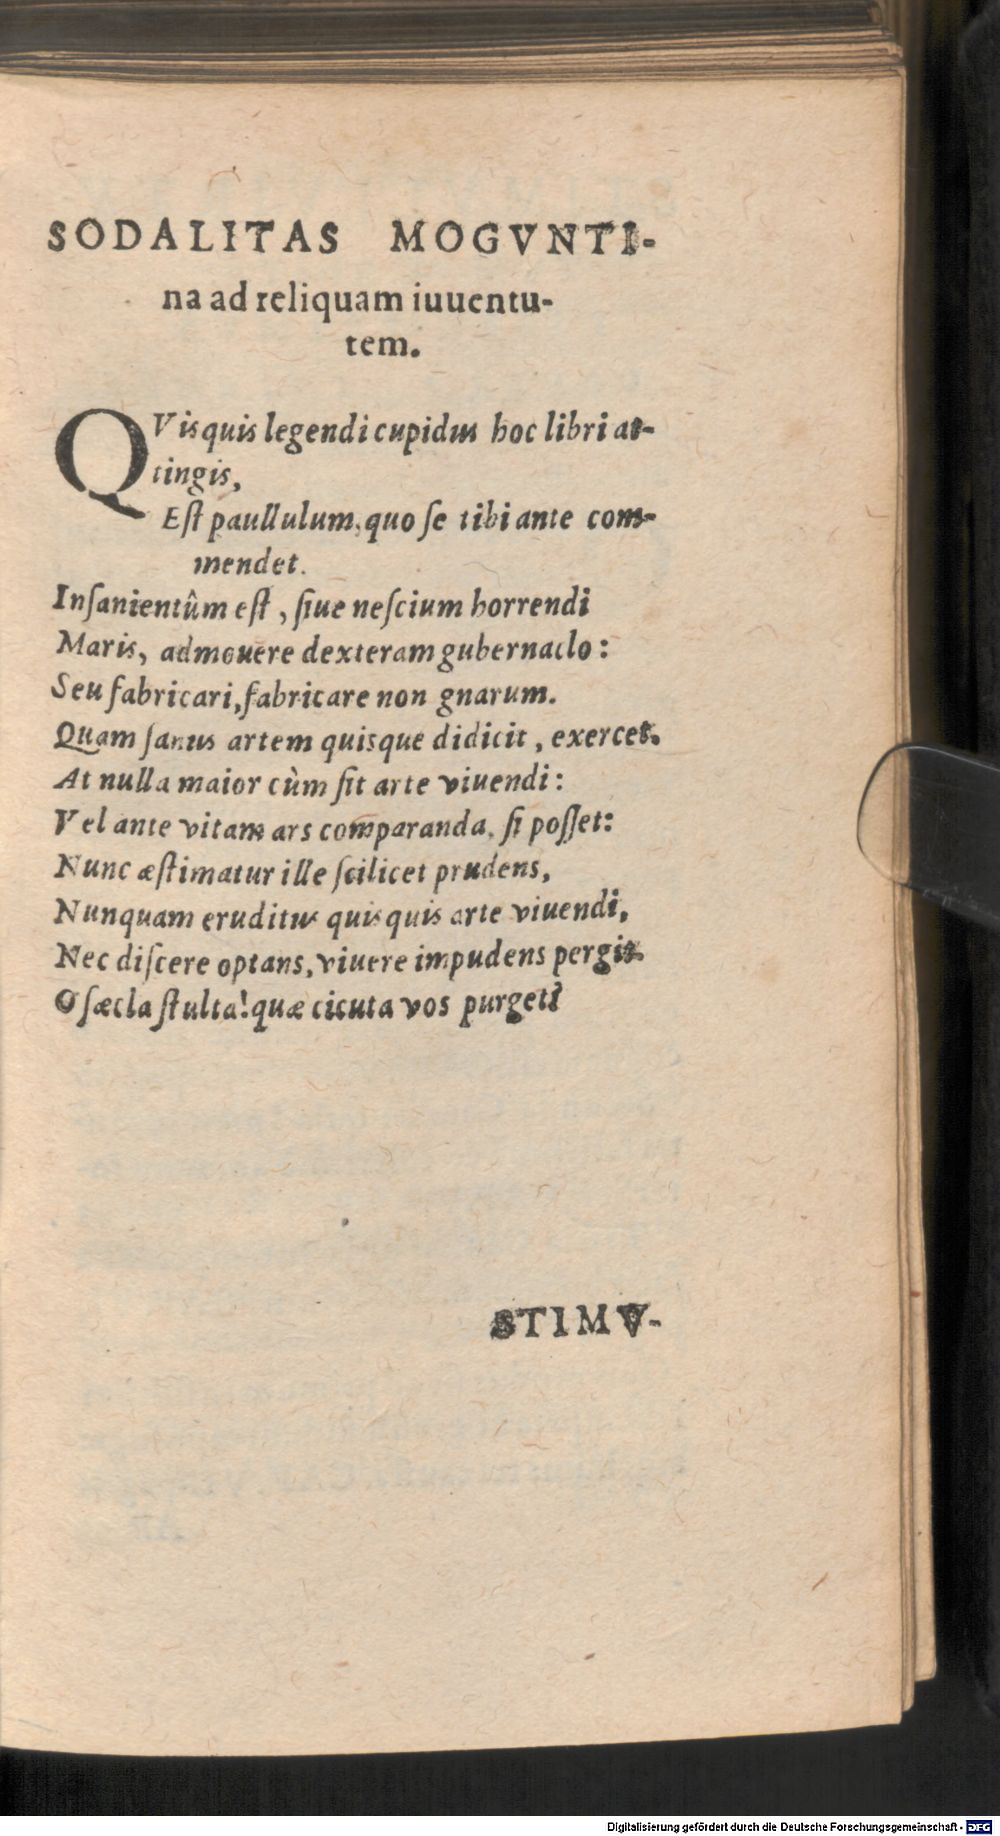 SODALITAS MOGVNTI-
na ad reliquam iuuentu-
tem.
QVisquis legendi cupidus hoc libri at-
tingis,
Eſt paullulum, quo ſe tibi ante com-
mendet.
Inſanientûm eſt, ſiue neſcium horrendi
Maris, admouere dexteram gubernaclo:
Seu fabricari, fabricare non gnarum.
Quam ſanus artem quisque didicit, exercet.
At nulla maior cùm ſit arte viuendi:
Vel ante vitam ars comparanda, ſi poſſet:
Nunc æſtimatur ille ſcilicet prudens,
Nunquam eruditus quisquis arte viuendi,
Nec diſcere optans, viuere impudens pergit.
O ſæcla ſtulta! quæ cicuta vos purget?
STIMV-
Digitalisierung gefördert durch die Deutsche Forschungsgemeinschaft - DFG